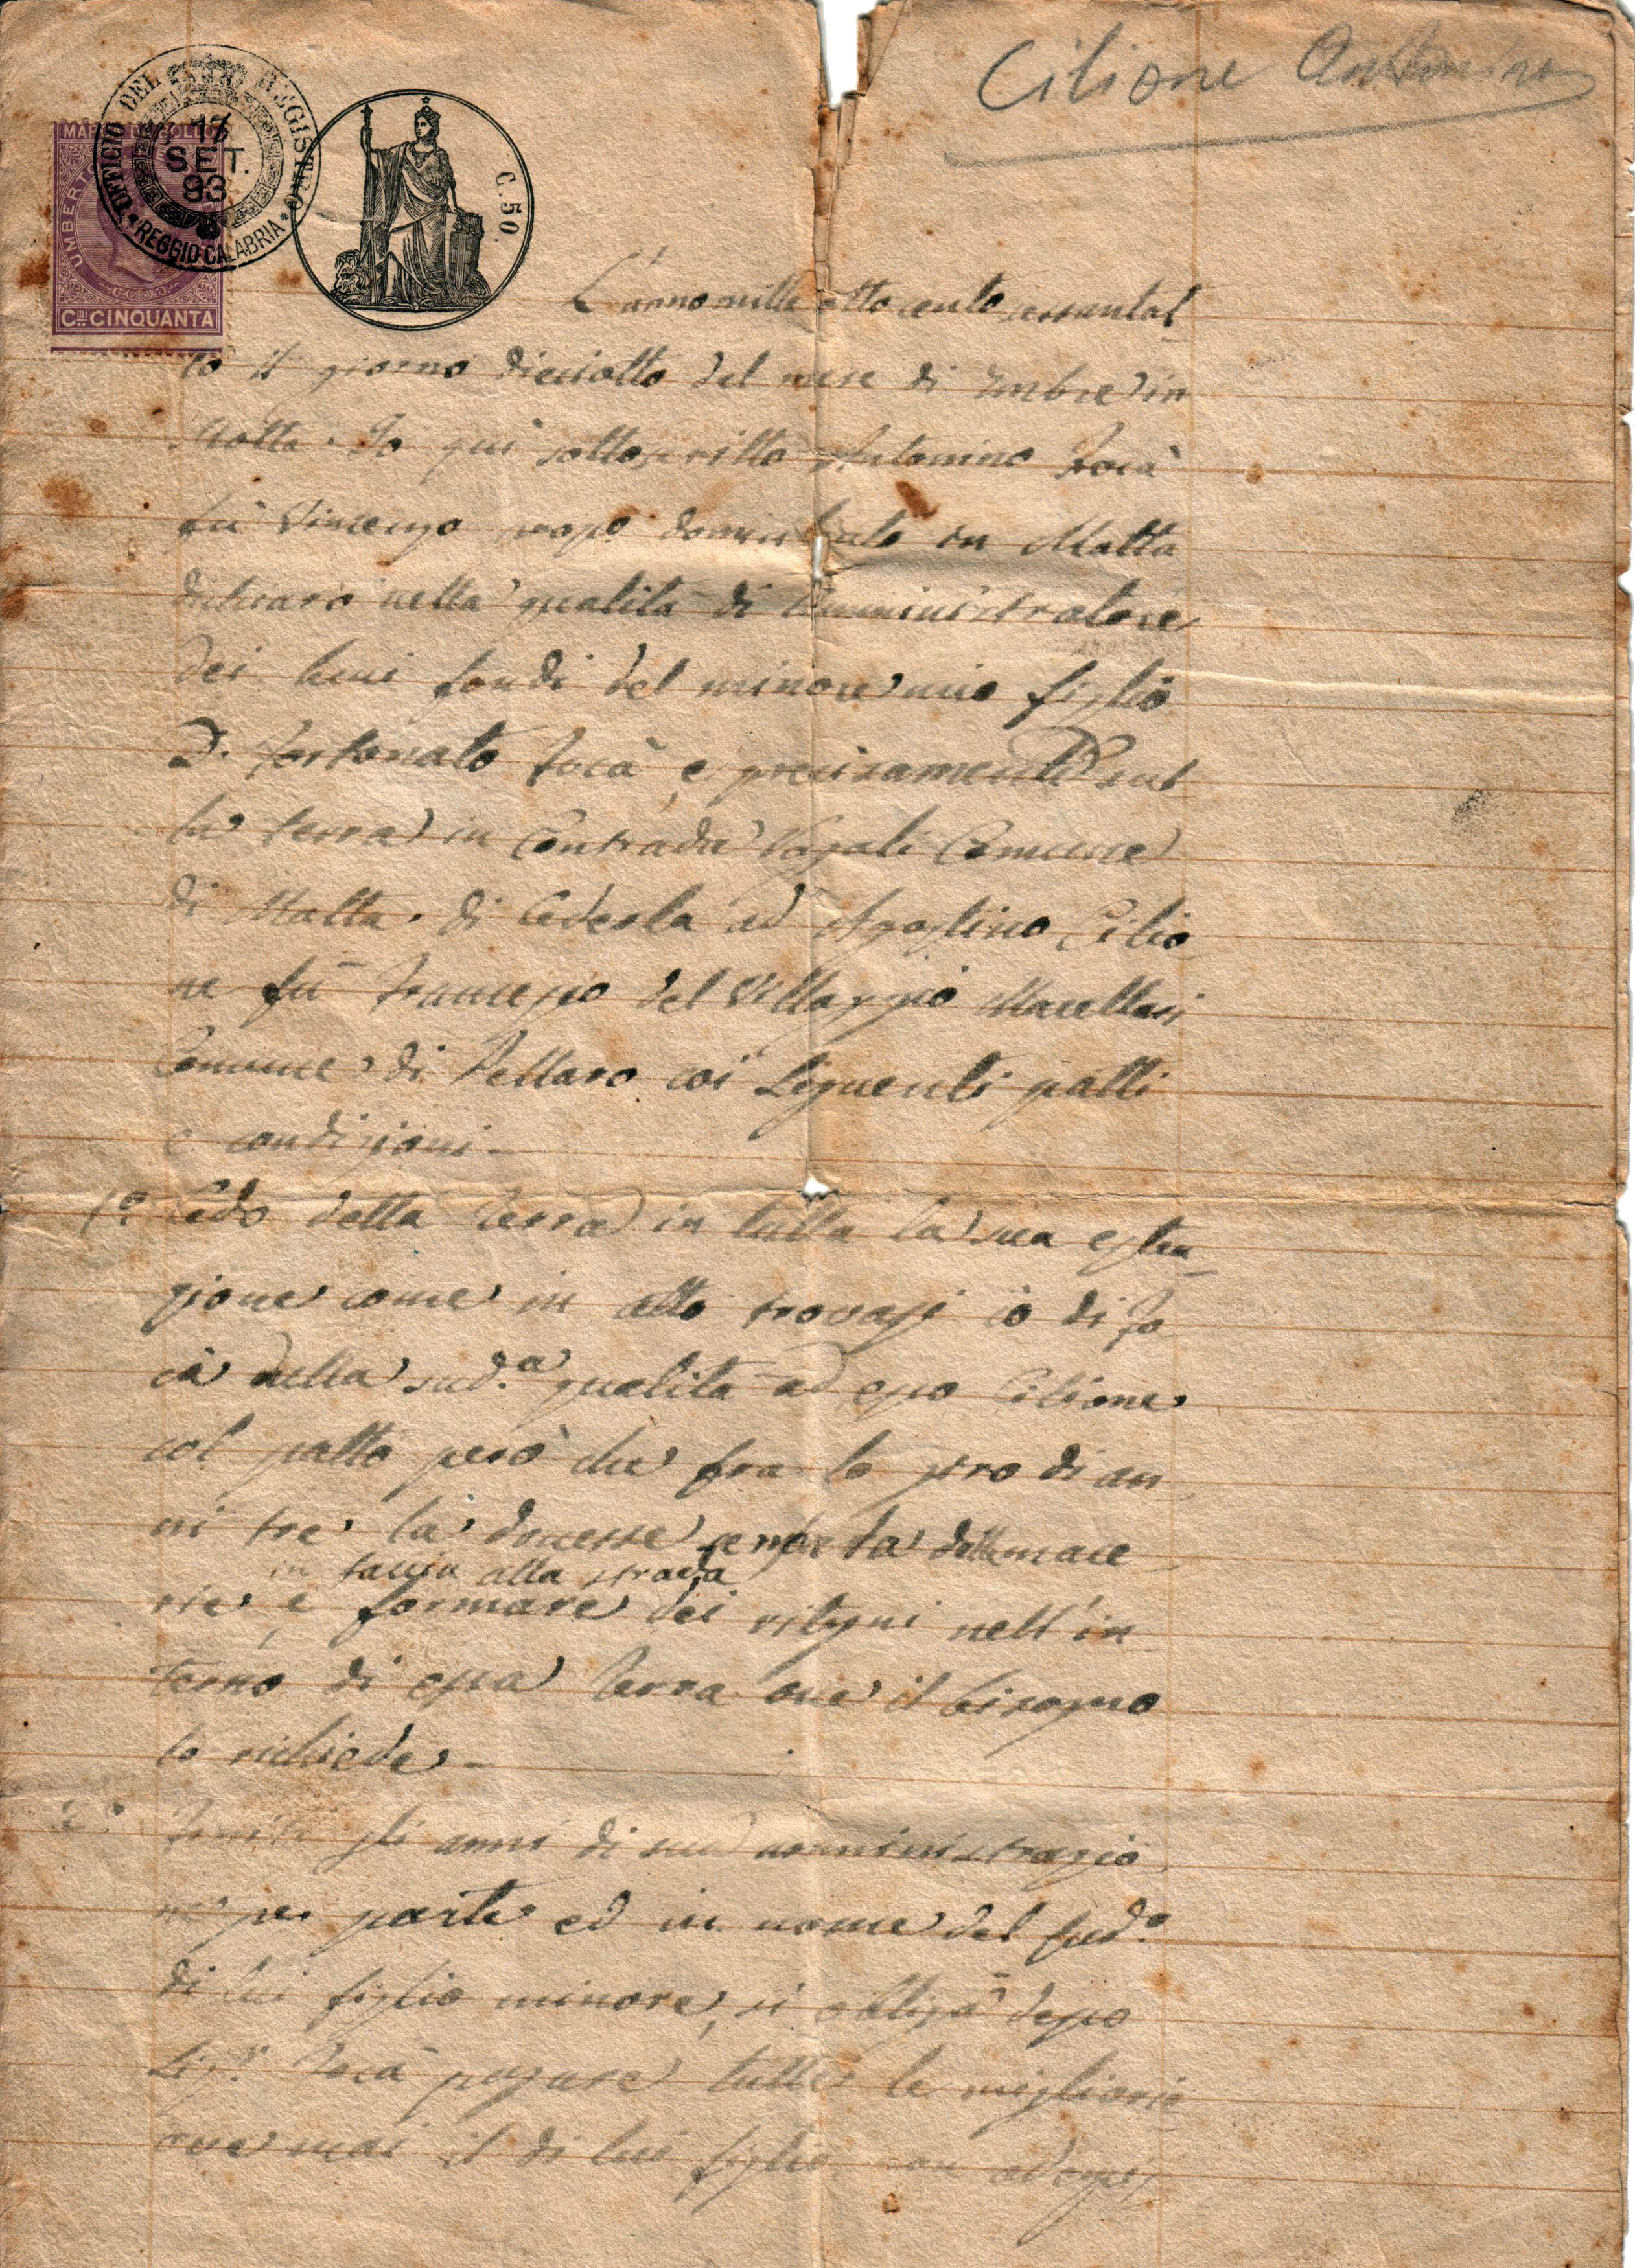 Cilione Antonino
UFFICIO DEL REGISTRO
17
SET.
93
REGGIO CALABRIA
MARCA DA BOLLO
UMBERTO
Cmi CINQUANTA
C. 50.
L'anno mille otto cento sessantot
to il giorno dieciotto del mese di 7mbre in
Motta. Io qui sottoscritto Antonino Focà
fu Vincenzo domiciliato in Motta
dichiaro nella qualità di Amministratore
dei fondi del minore mio figlio
D. Fortonato Focà e precisamente sul
la terra in Contrada Comune
di Motta. di Cederla ad Agostino Cilio
ne fù Francesco del Villaggio Macellari
Comune di Pellaro coi seguenti patti
e condizioni -
1º Cedo detta terra in tutta la sua esten
zione come in atto trovasi io di Fo
cà nella sud.a qualità ad esso Cilione
col patto però che fra lo giro di an
ni tre la dovesse delle mace
in faccia alla strada
rie, e formare dei ritegni nell'in
terno di essa terra ove il bisogno
lo richiede -
2º Finiti gli anni di sua amministrazio
ne per parte ed in nome del sud.o
di lui figlio minore, si obliga desso
Sig.r Focà pagare tutte le migliorie
ove mai il di lui figlio non